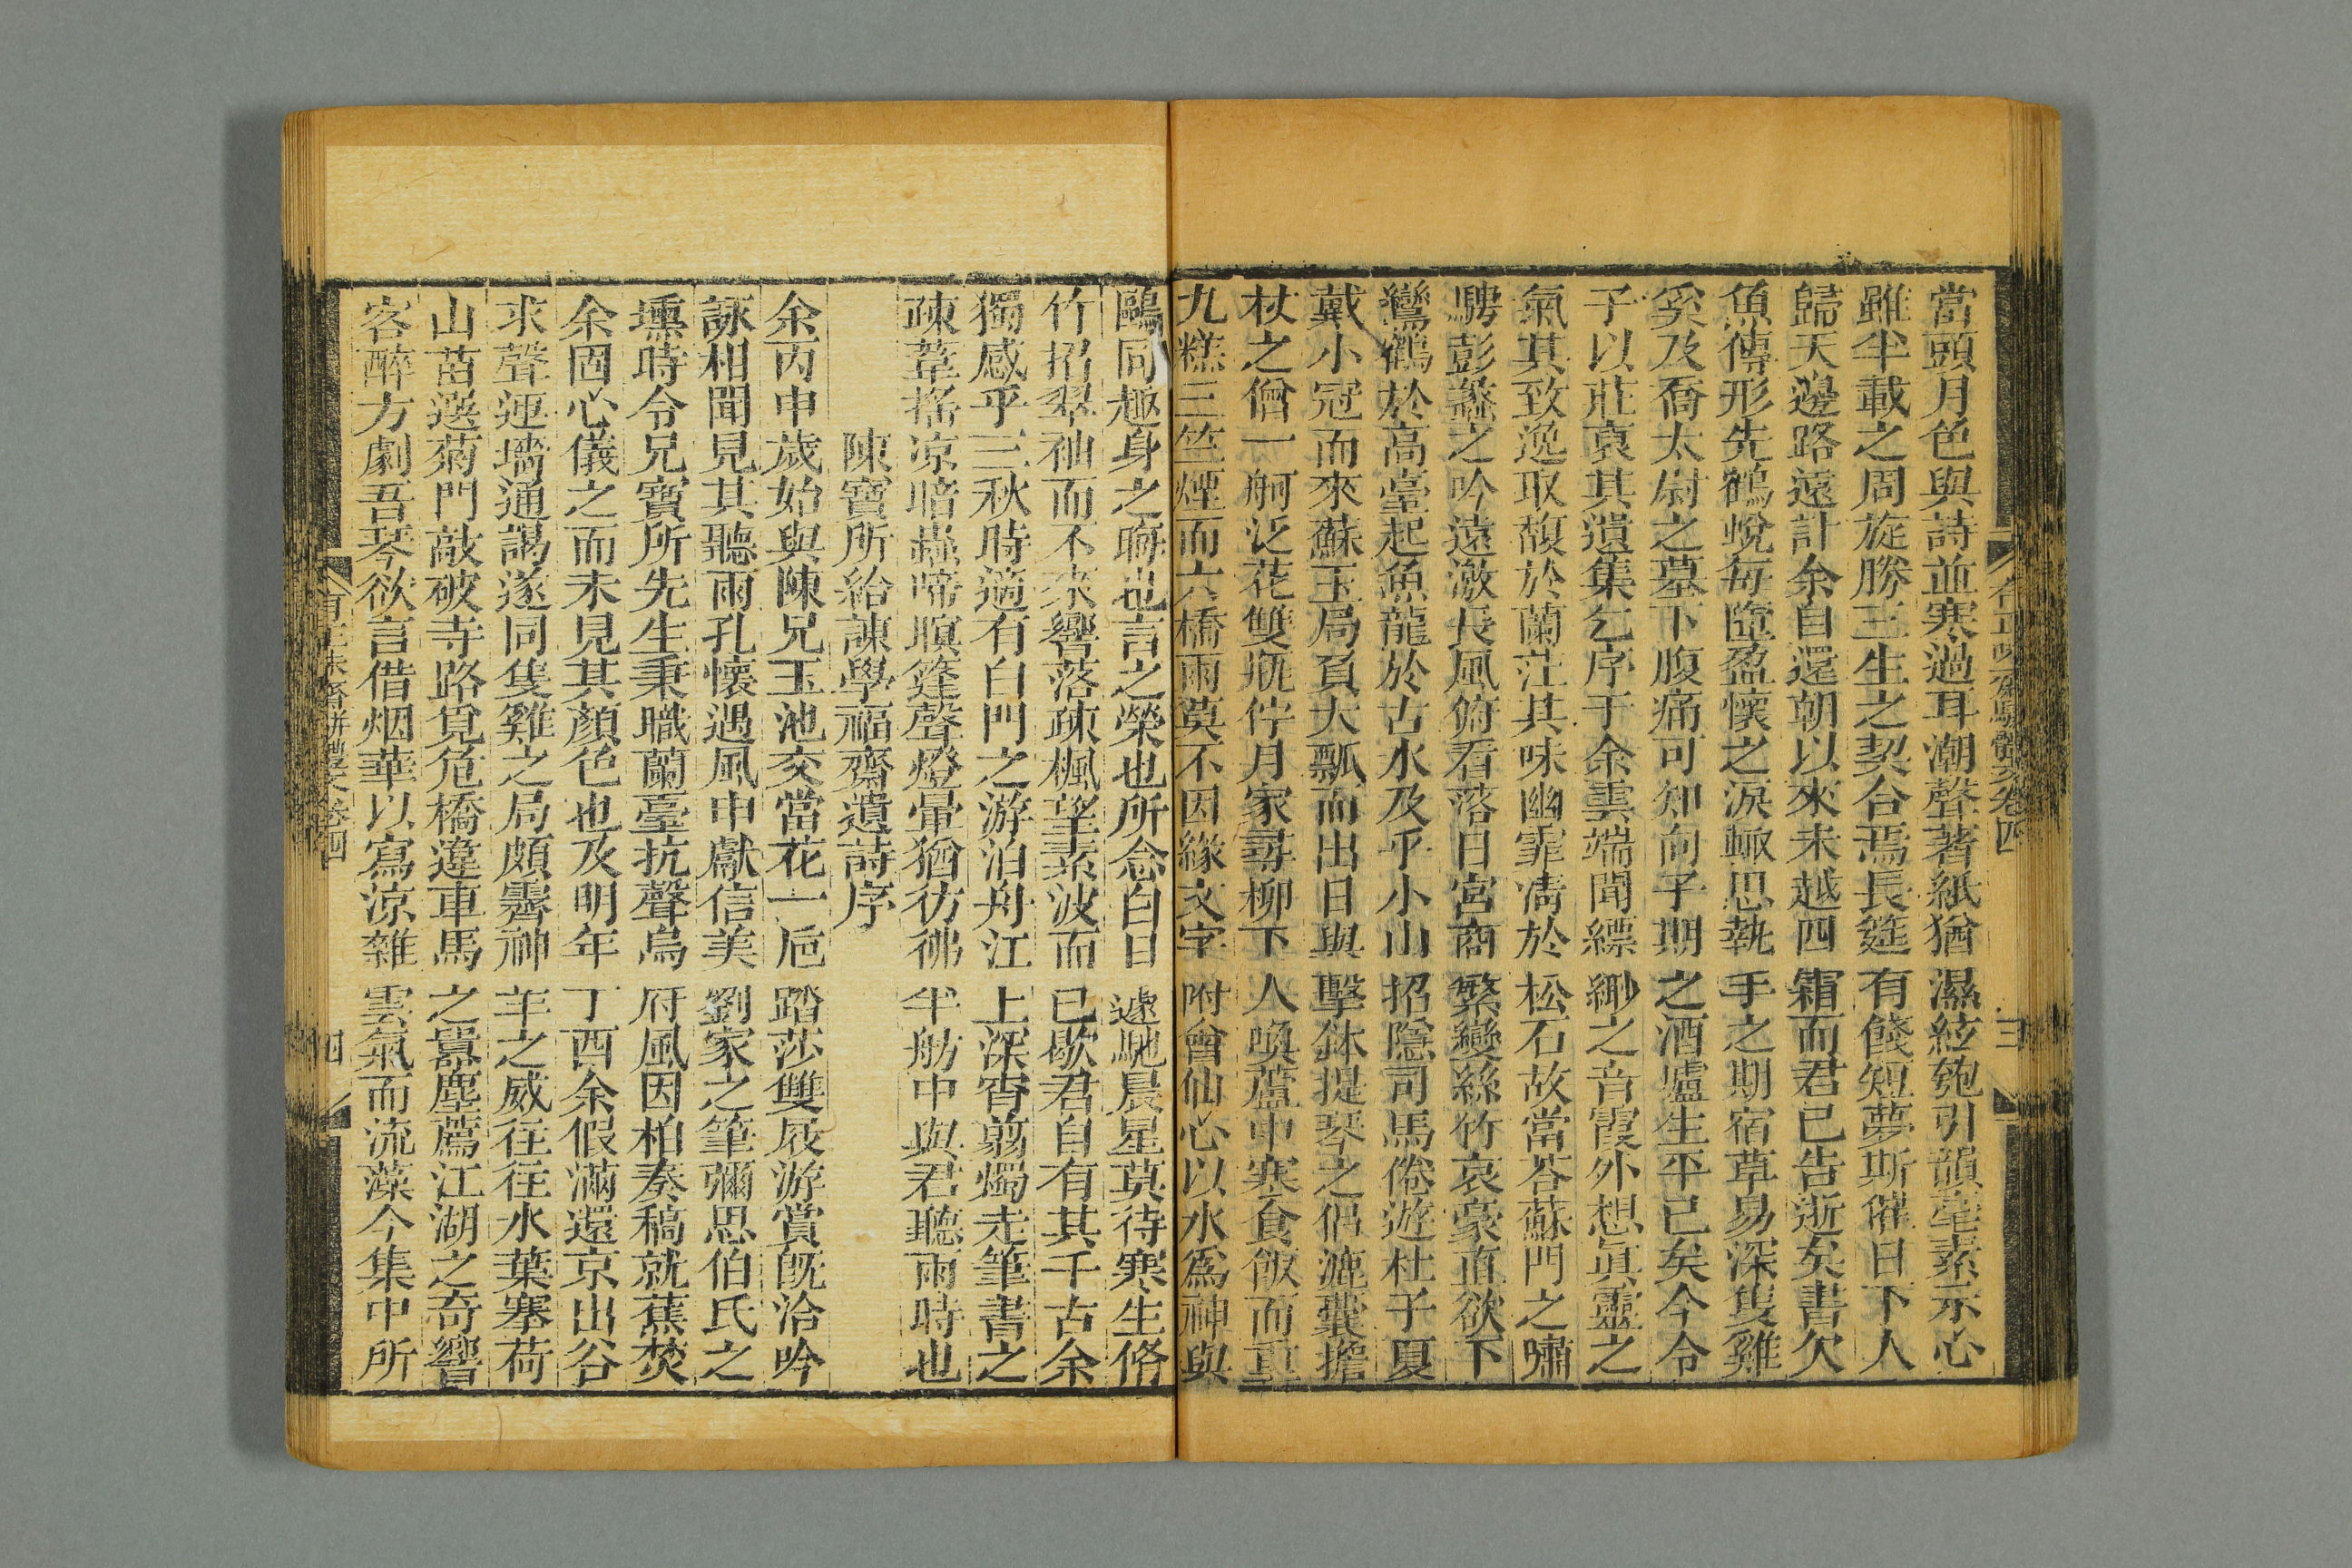 當頭月色與詩並寒過耳潮聲著紙猶濕絃匏引韻毫素示心
雖半載之周旋勝三生之契合焉長筵有餞短夢斯催日下人
歸天邊路遠計余自還朝以來未越四霜而君已告逝矣書欠
魚傳形先鶴蛻每墮盈懷之淚輒思執手之期宿草易深隻雞
奚及喬太尉之墓下腹痛可知向子期之酒壚生平已矣今令
子以莊裒其遺集乞序于余雲端聞縹緲之音霞外想眞靈之
氣其致逸取馥於蘭茳其味幽霏淸於松石故當荅蘇門之嘯
騁彭蠡之吟遠激長風俯看落日宮商繁變絲竹哀豪直欲下
鸞鶴於高臺起魚龍於古水及乎小山招隱司馬倦遊杜子夏
戴小冠而來蘇玉局負大瓢而出日與擊鉢提琴之侶漉囊擔
杖之僧一舸泛花雙瓻佇月家尋柳下人喚蘆中寒食飯而重
九糕三竺煙而六橋雨莫不因緣文字咐會仙心以水爲神與
鷗同趣身之晦也言之榮也所念白日遽馳晨星莫待寒生脩
竹招翠袖而不來響落疎楓望素波而已歇君自有其千古余
獨感乎三秋時適有白門之游泊舟江上深宵翦燭走筆書之
疎葦搖凉暗蛩啼順篷聲燈暈猶彷彿半舫中與君聽雨時也
陳寶所給諫學福齋遺詩序
余丙申歲始與陳兄玉池交當花一巵踏莎雙屐游賞旣洽吟
詠相聞見其聽雨孔懷遇風申獻信美劉家之筆彌思伯氏之
壎時令兄寶所先生秉職蘭臺抗聲烏府風因柏奏稿就蕉焚
余固心儀之而未見其顏色也及明年丁酉余假滿還京出谷
求聲連墻通謁遂同隻雞之局頗霽神羊之威往往水葉搴荷
山苗選菊門敲破寺路覓危橋違車馬之囂塵薦江湖之奇響
客醉方劇吾琴欲言借烟華以寫凉雜雲氣而流藻今集中所